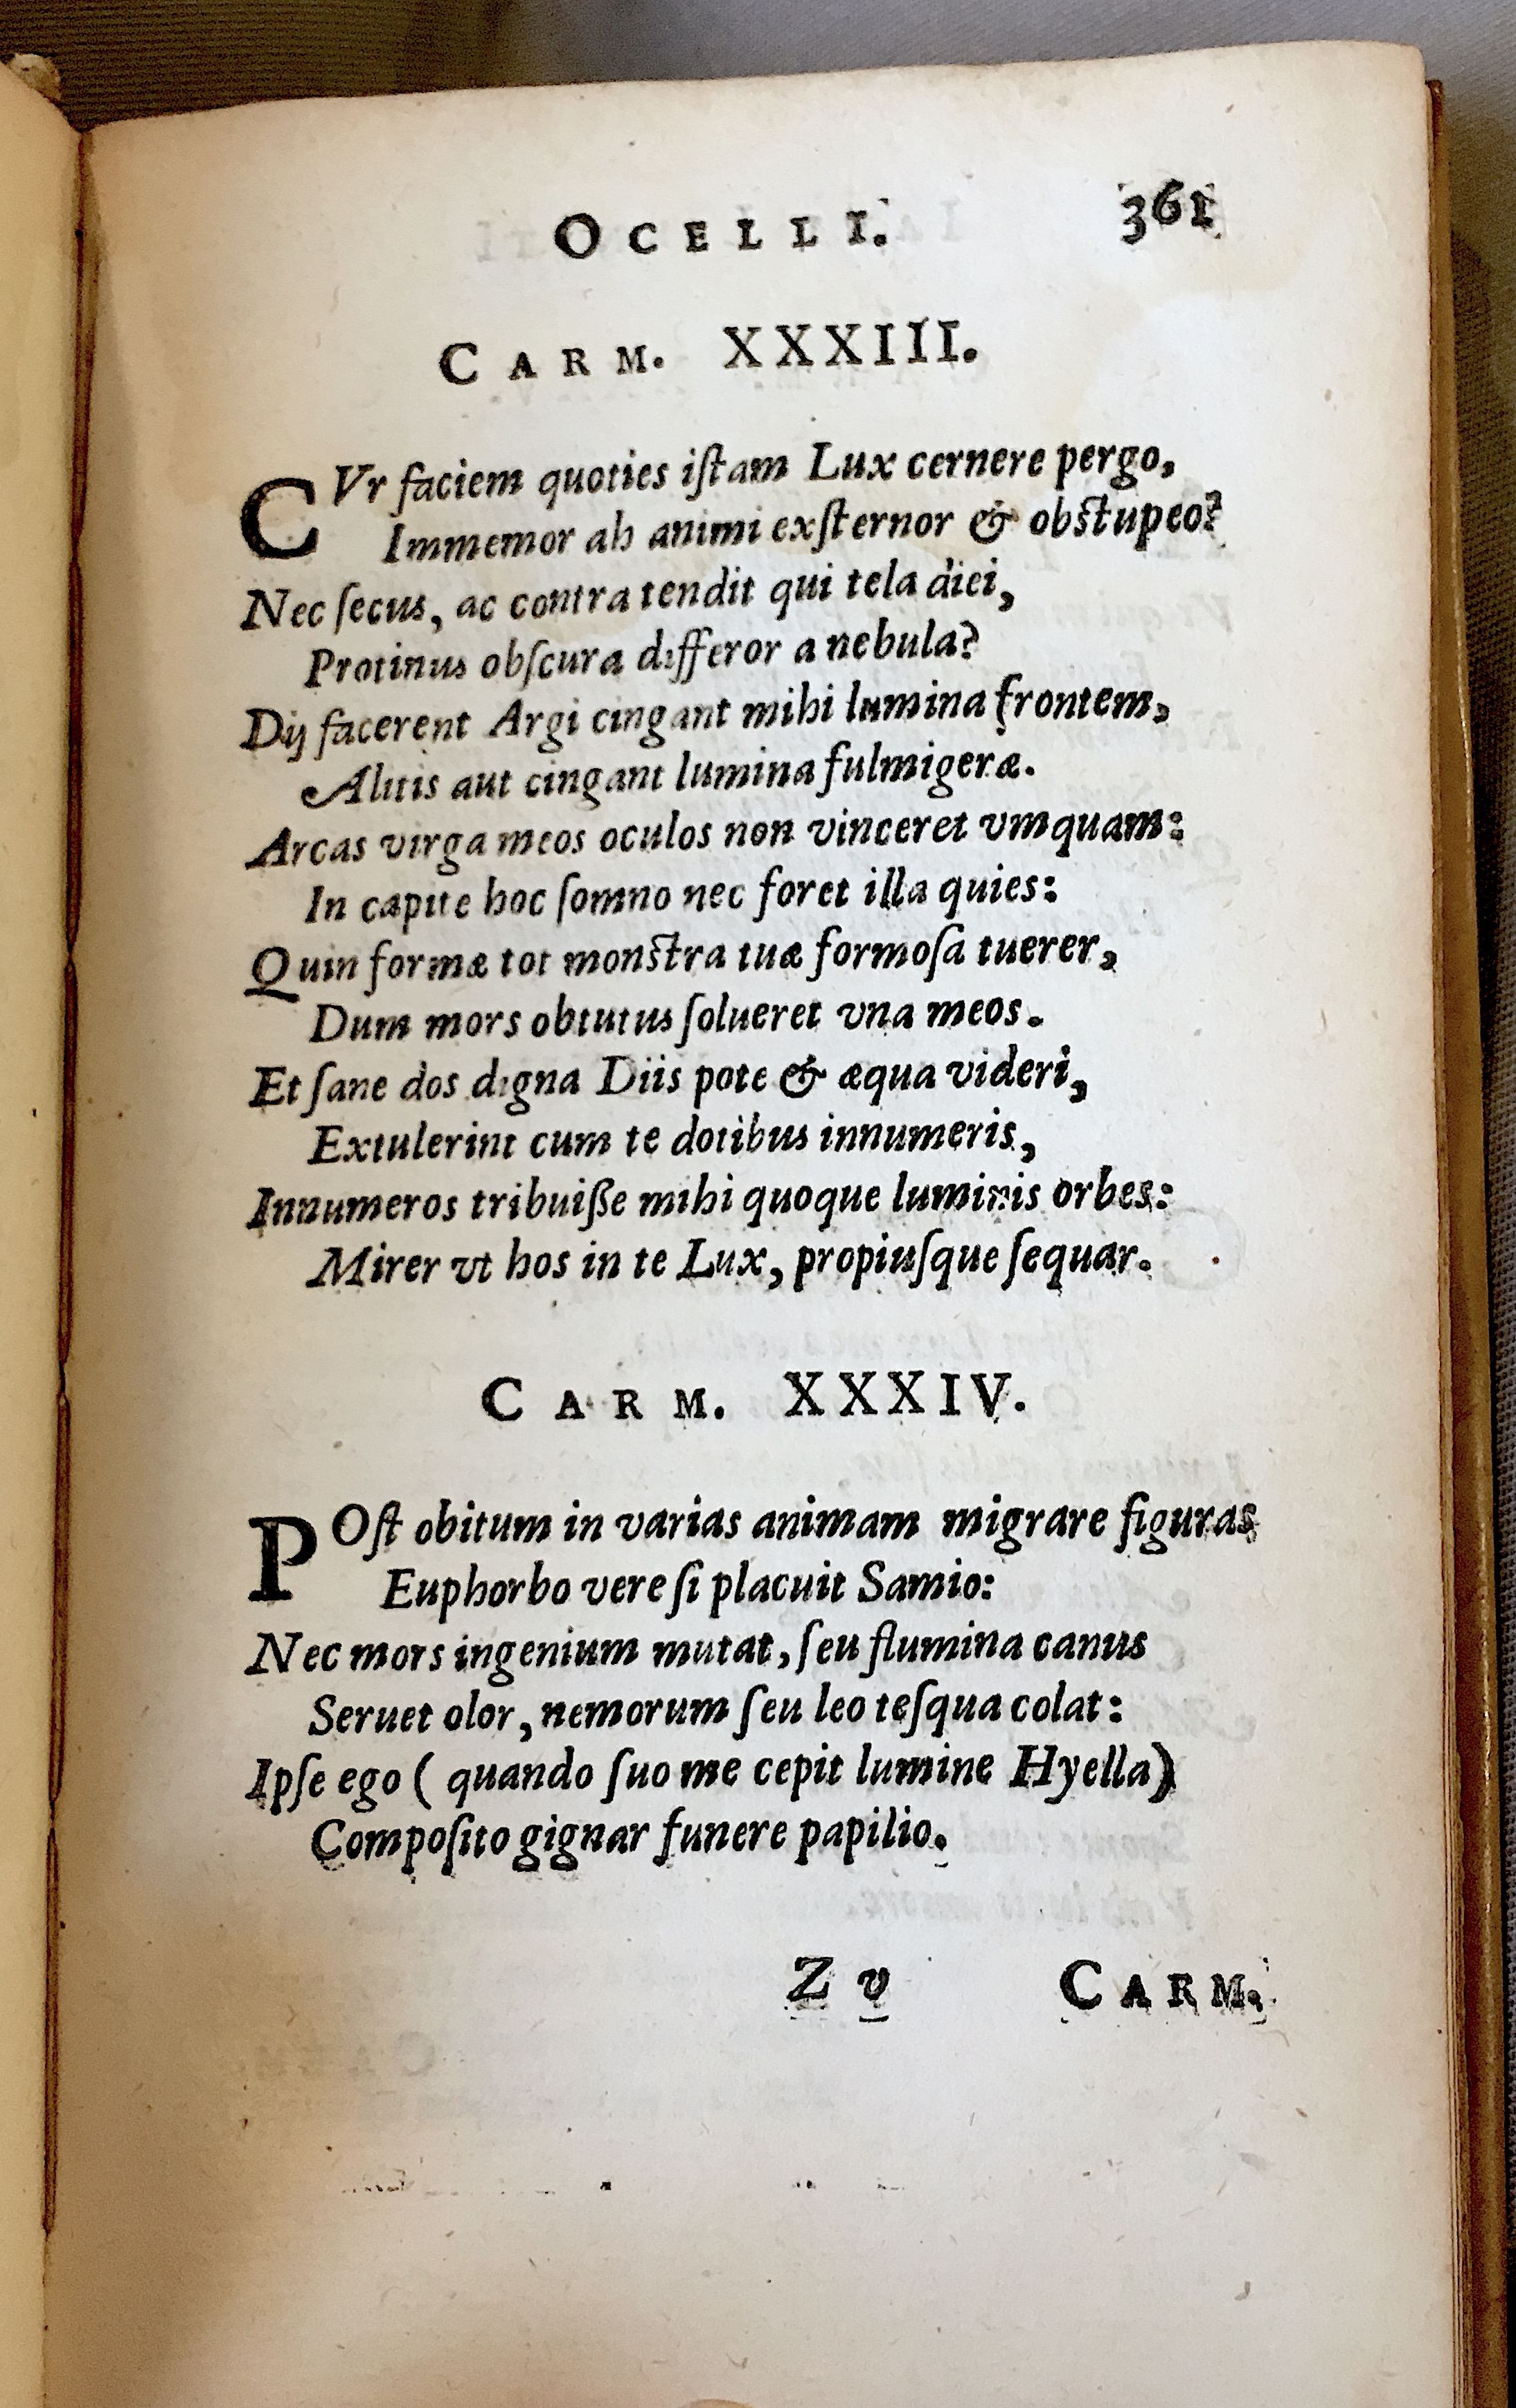 OCELLI. 361
CARM. XXXIII.
CVr faciem quoties iſtam Lux cernere pergo,
Immemor ah animi exſternor & obſtupeo?
Nec ſecus, ac contra tendit qui tela diei,
Protinus obſcura differor a nebula?
Dij facerent Argi cingant mihi lumina frontem,
Alitis aut cingant lumina fulmigeræ.
Arcas virga meos oculos non vinceret vmquam:
In capite hoc ſomno nec foret illa quies:
Quin formæ tot monſtra tuæ formoſa tuerer,
Dum mors obtutus ſolueret vna meos.
Et ſane dos digna Diis pote & æqua videri,
Extulerint cum te dotibus innumeris,
Innumeros tribuiſſe mihi quoque luminis orbes:
Mirer vt hos in te Lux, propiuſque ſequar.
CARM. XXXIV.
POſt obitum in varias animam migrare figuras
Euphorbo vere ſi placuit Samio:
Nec mors ingenium mutat, ſeu flumina canus
Seruet olor, nemorum ſeu leo teſqua colat:
Ipſe ego ( quando ſuo me cepit lumine Hyella)
Compoſito gignar funere papilio.
Z v CARM.